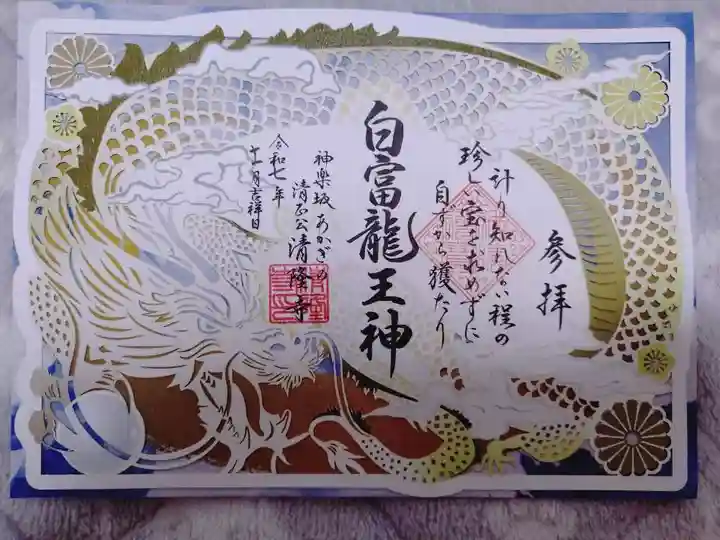 参拝
計り知れない程の
珍しい宝を求めずに
自ずから獲たり
白富龍王神
神楽坂あかぎ
清正公清隆寺
令和七年
十一月吉祥日